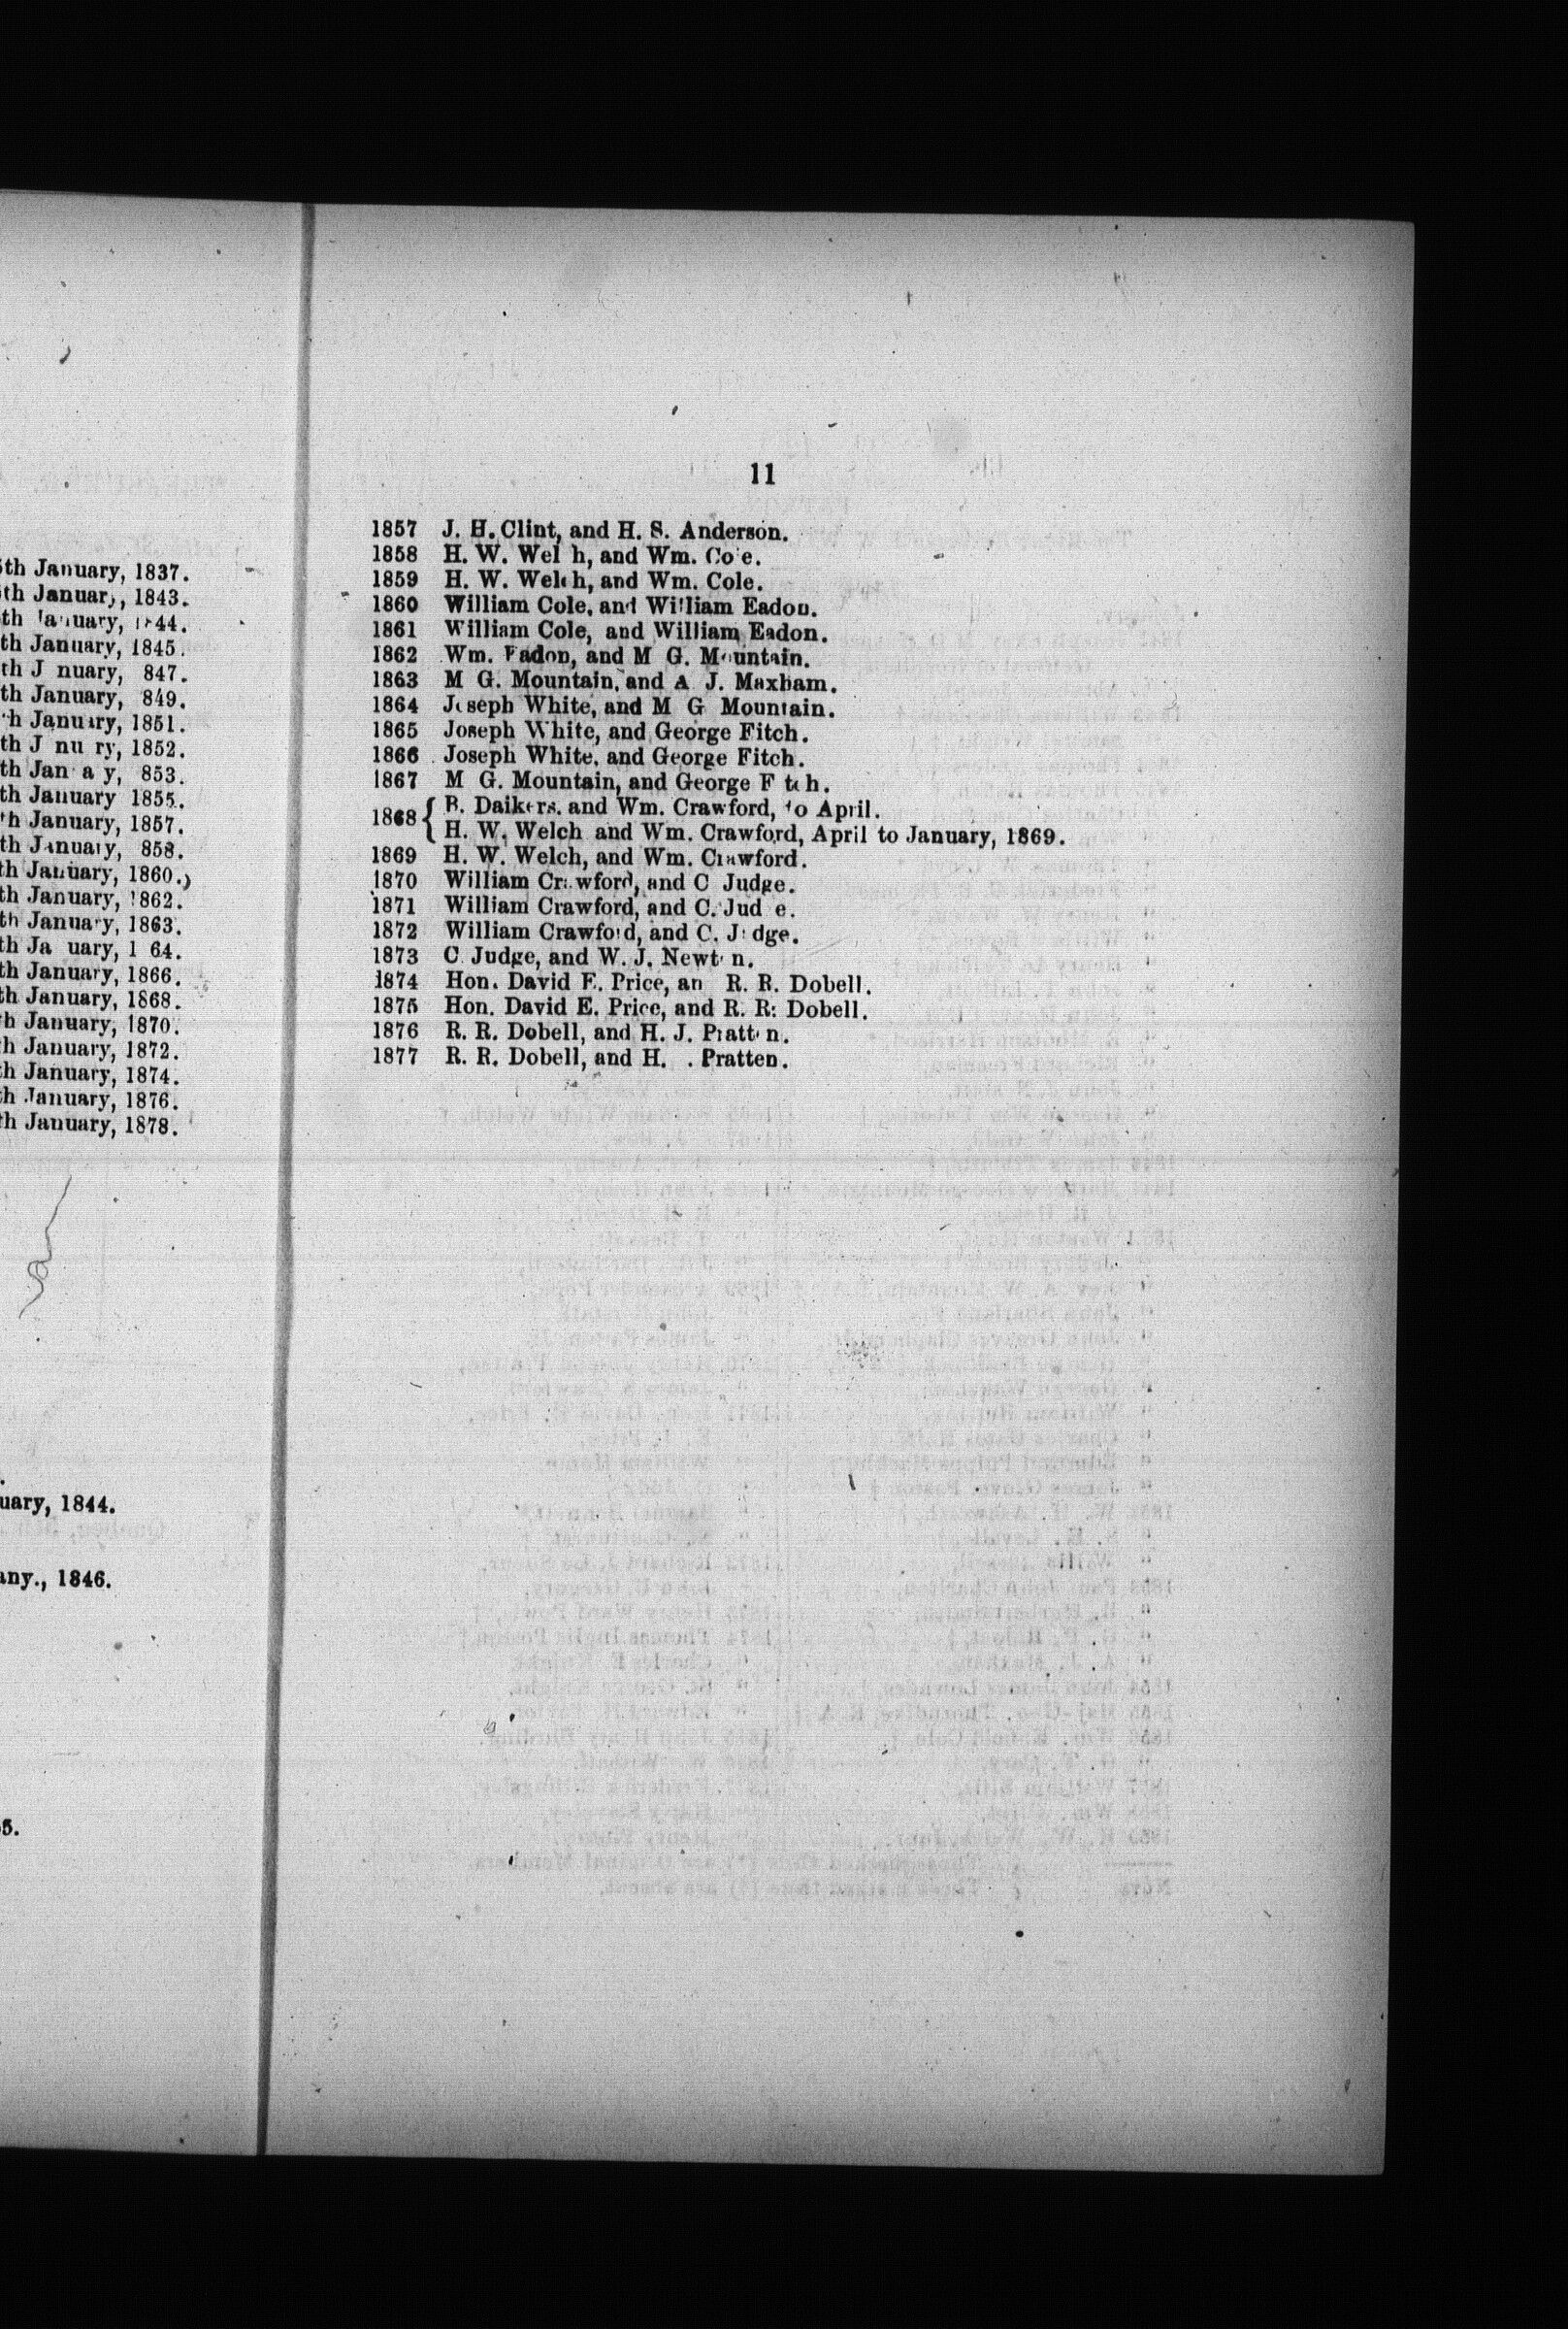 th January, 1837.
th January, 1843.
th January, 1844.
th January, 1845.
th J nuary, 847.
th January, 849.
h January, 1851.
th J nu ry, 1852.
th Jan a y, 853.
th January 1855.
h January, 1857.
th January, 858.
th January, 1860.)
th January, 1862.
th January, 1863.
th Ja uary, 1 64.
th January, 1866.
th January, 1868.
h January, 1870.
h January, 1872.
h January, 1874.
h January, 1876.
h January, 1878.
uary, 1844.
any., 1846.
5.
11
1857 J. H. Clint, and H. S. Anderson.
1858 H. W. Wel h, and Wm. Co e.
1859 H. W. Welch, and Wm. Cole.
1860 William Cole, and William Eadon.
1861 William Cole, and William Eadon.
1862 Wm. Eadon, and M G. Mountain.
1863 M G. Mountain, and A J. Maxham.
1864 Joseph White, and M G Mountain.
1865 Joseph White, and George Fitch.
1866 Joseph White, and George Fitch.
1867 M G. Mountain, and George F tch.
1868 { B. Daikers. and Wm. Crawford, to April.
H. W. Welch and Wm. Crawford, April to January, 1869.
1869 H. W. Welch, and Wm. Crawford.
1870 William Crawford, and C Judge.
1871 William Crawford, and C. Jud e.
1872 William Crawford, and C. Judge.
1873 C Judge, and W. J. Newt n.
1874 Hon. David E. Price, an R. R. Dobell.
1875 Hon. David E. Price, and R. R. Dobell.
1876 R. R. Dobell, and H. J. Pratt n.
1877 R. R. Dobell, and H. . Pratten.